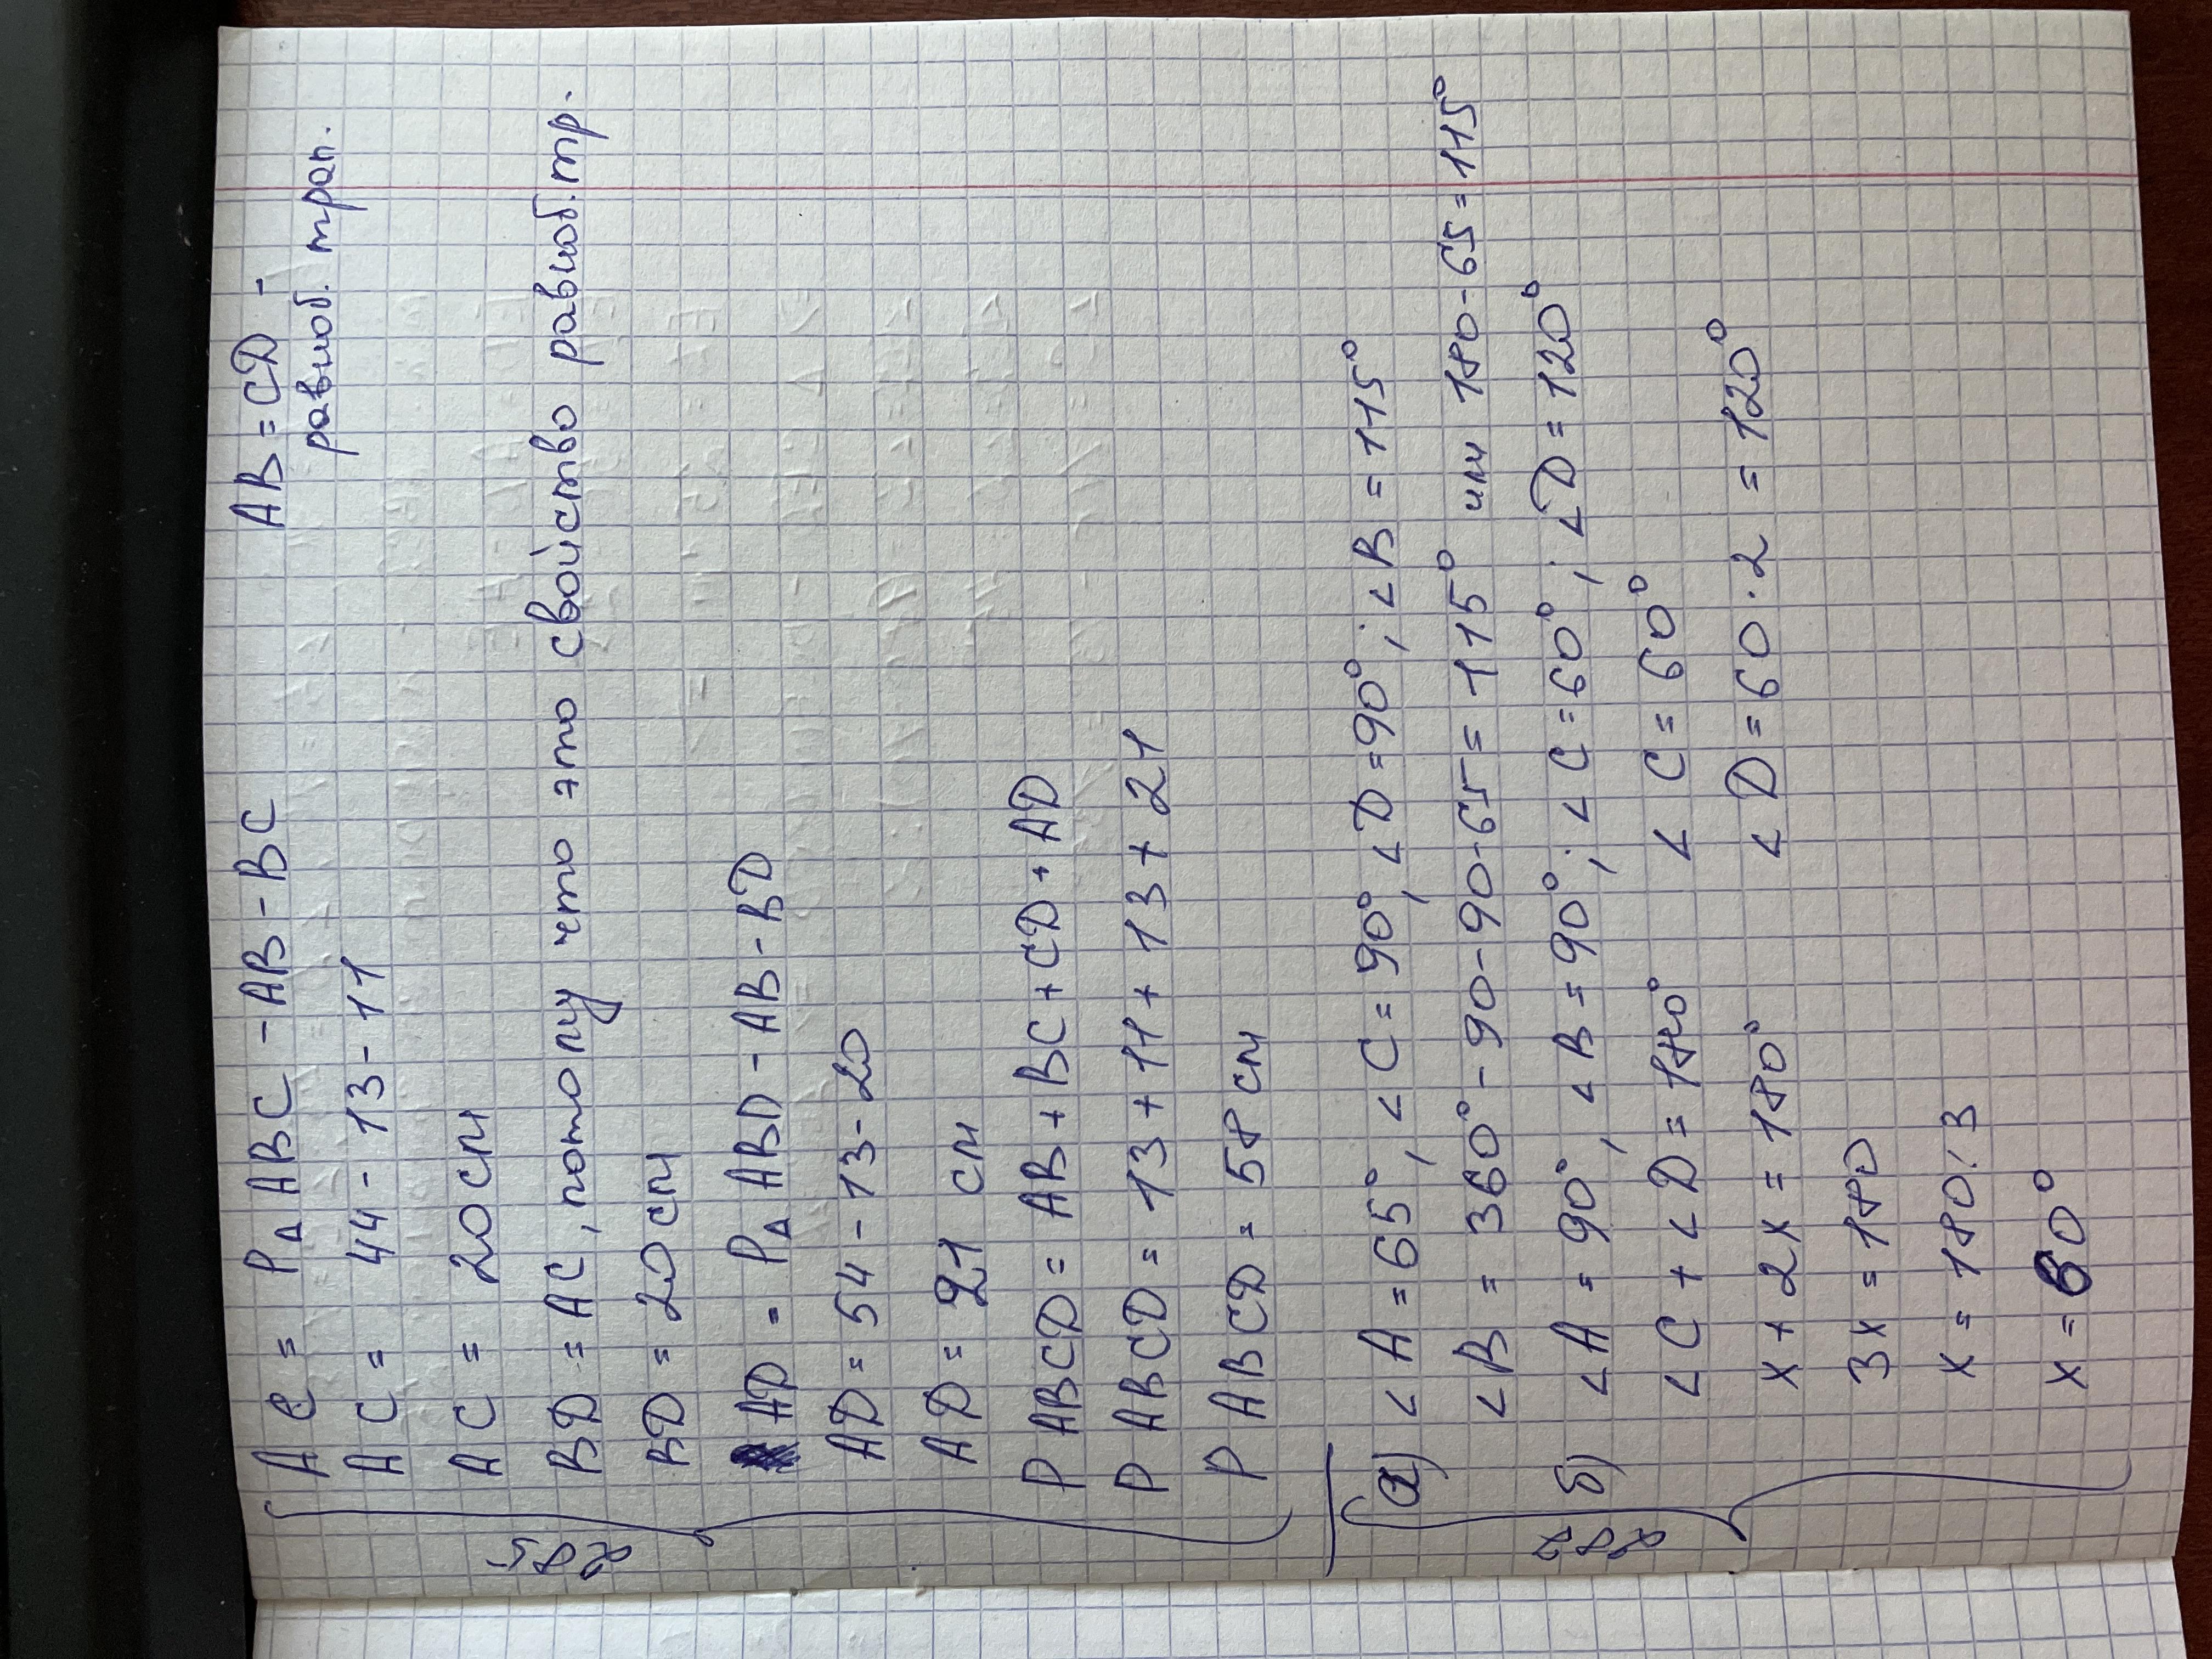 AC = P△ABC - AB - BC
AB = CD -
равноб. трап.
AC = 44 - 13 - 11
AC = 20 см
BD = AC, потому что это свойство равноб. тр.
BD = 20 см
AD = P△ABD - AB - BD
AD = 54 - 13 - 20
AD = 21 см
P ABCD = AB + BC + CD + AD
P ABCD = 13 + 11 + 13 + 21
P ABCD = 58 см
285
а) ∠A = 65°, ∠C = 90°, ∠D = 90°; ∠B = 115°
∠B = 360° - 90 - 90 - 65 = 115° или 180 - 65 = 115°
б) ∠A = 90°, ∠B = 90°; ∠C = 60°; ∠D = 120°
∠C + ∠D = 180° ∠C = 60°
x + 2x = 180° ∠D = 60 · 2 = 120°
3x = 180
x = 180 : 3
x = 60°
287